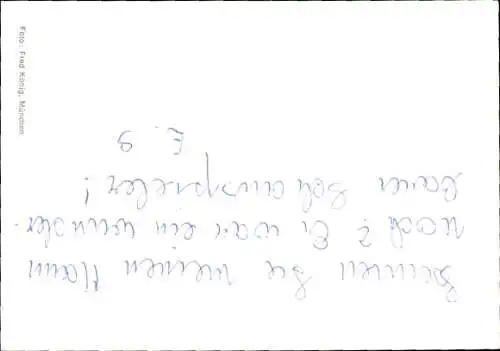 Foto: Fred König, München
Kennen Sie meinen Mann
noch? Er war ein wunder-
barer Schauspieler!
E. S